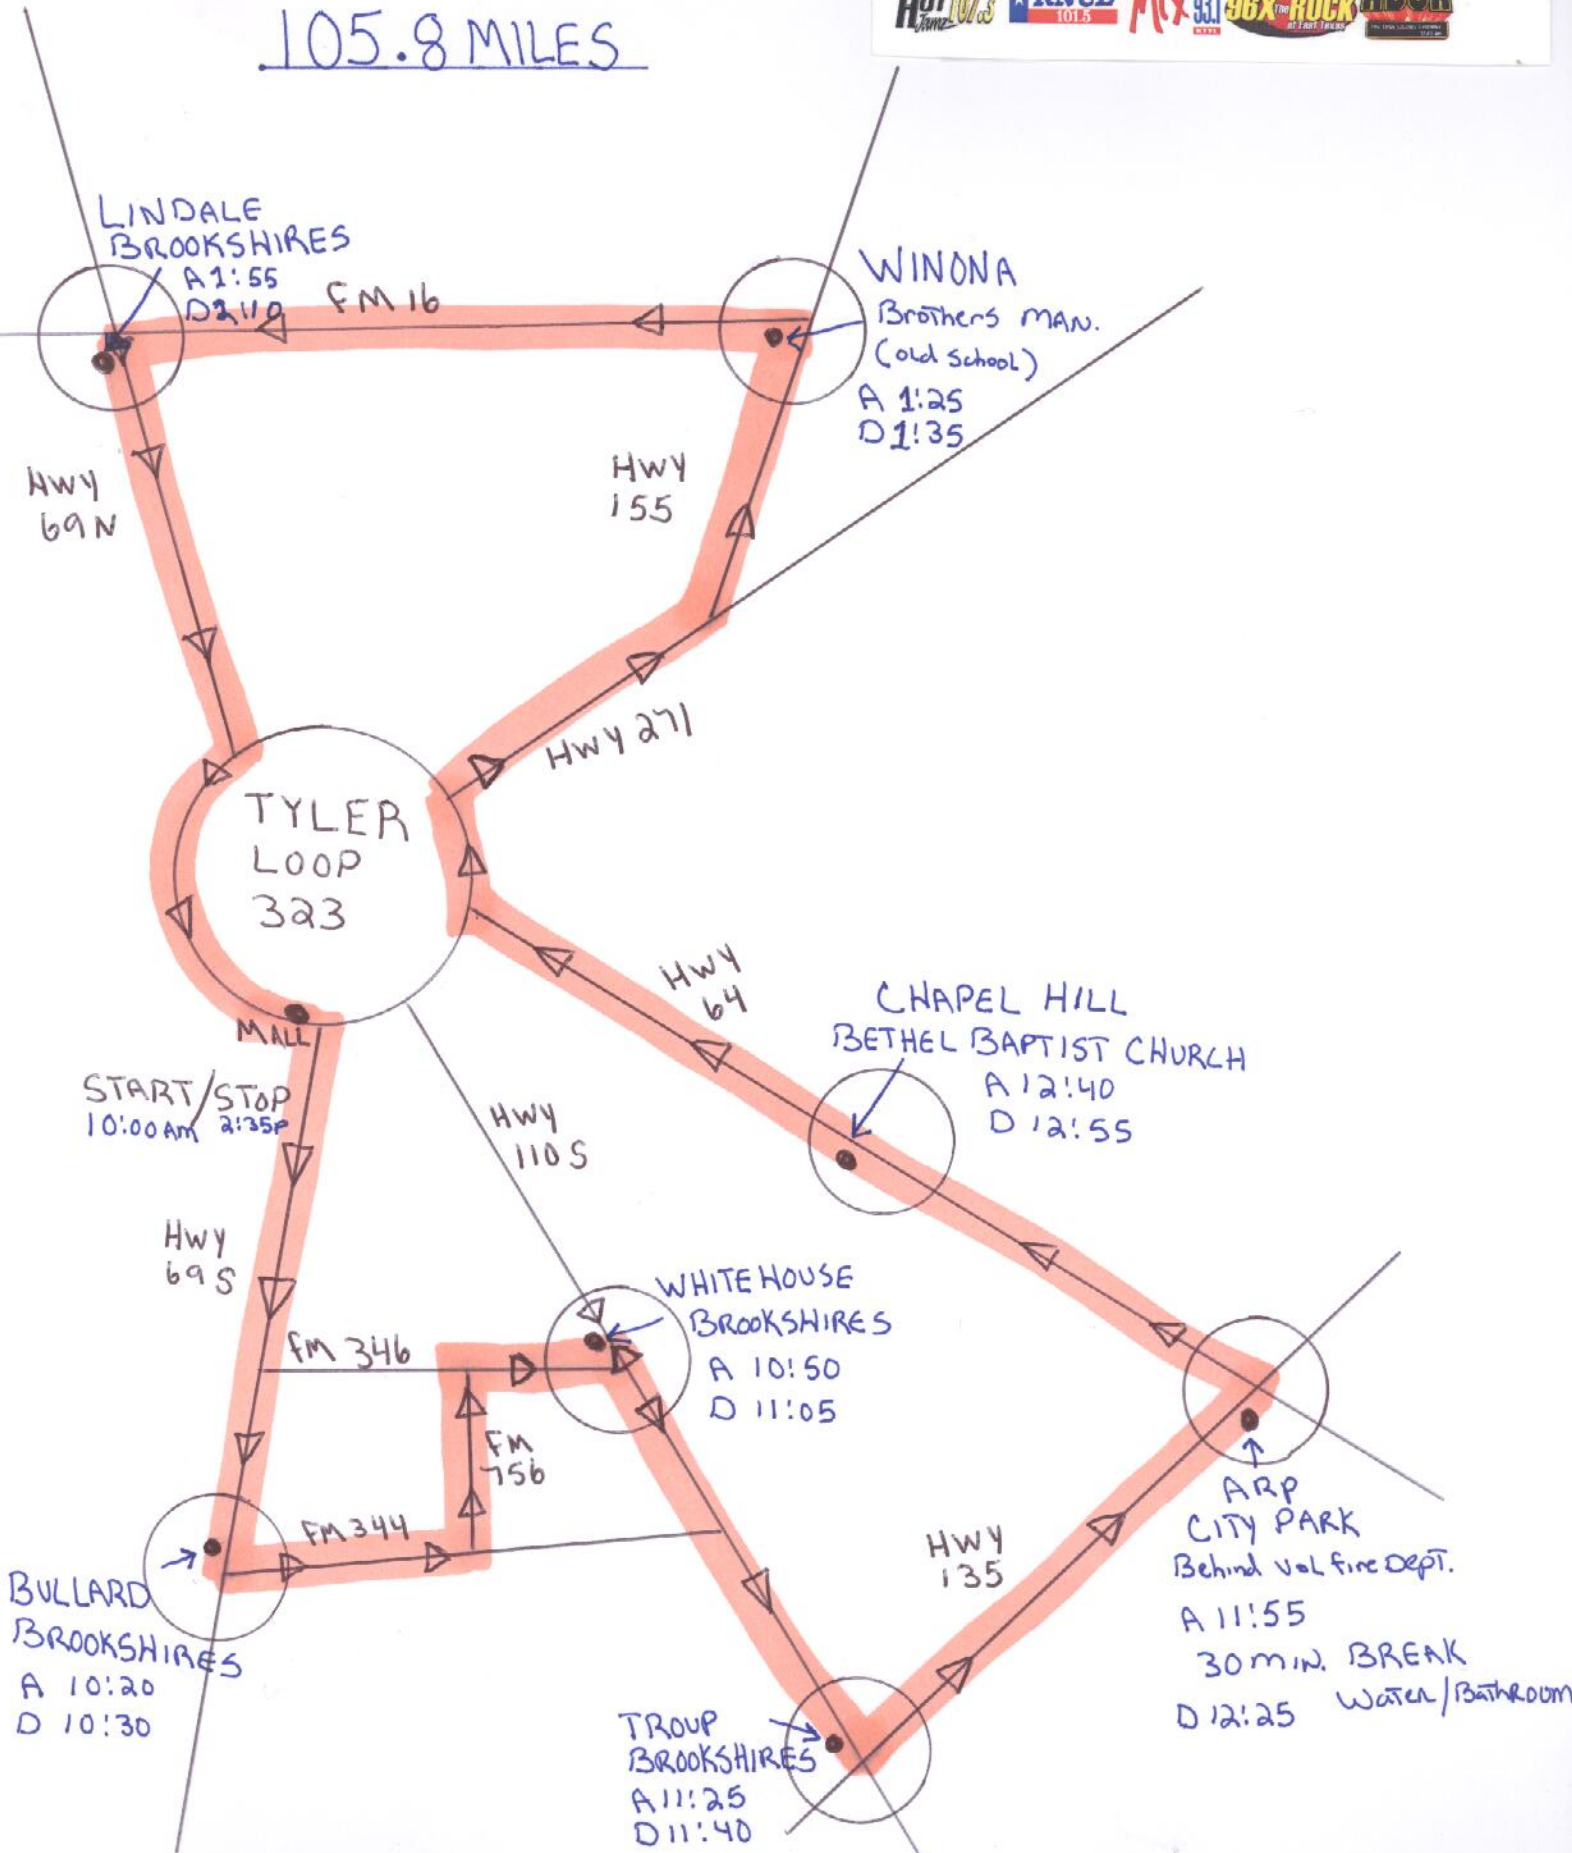 105.8 MILES
Hot
Jamz
107.3
KNUE
101.5
Mix
93.1
KTYL
96X
The
ROCK
of East Texas
LINDALE
BROOKSHIRES
A 1:55
D 2:10
FM 16
WINONA
Brothers MAN.
(old School)
A 1:25
D 1:35
HWY
69N
HWY
155
HWY 271
TYLER
LOOP
323
MALL
START/STOP
10:00 AM 2:35P
HWY
64
CHAPEL HILL
BETHEL BAPTIST CHURCH
A 12:40
D 12:55
HWY
110 S
HWY
69 S
WHITEHOUSE
BROOKSHIRES
A 10:50
D 11:05
FM 346
FM
756
FM 344
BULLARD
BROOKSHIRES
A 10:20
D 10:30
HWY
135
ARP
CITY PARK
Behind Vol fire Dept.
A 11:55
30 MIN. BREAK
Water/Bathroom
D 12:25
TROUP
BROOKSHIRES
A 11:25
D 11:40